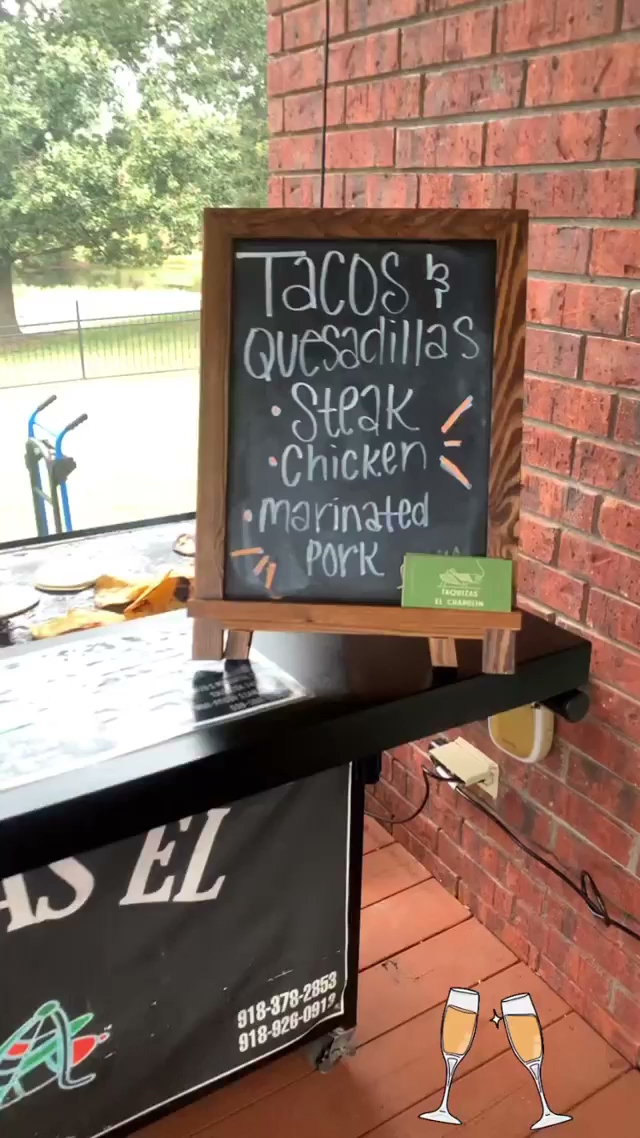 Tacos &
Quesadillas
• Steak
• Chicken
• Marinated
Pork
TAQUIZAS
EL CHAPULIN
AS EL
918-378-2853
918-926-0912